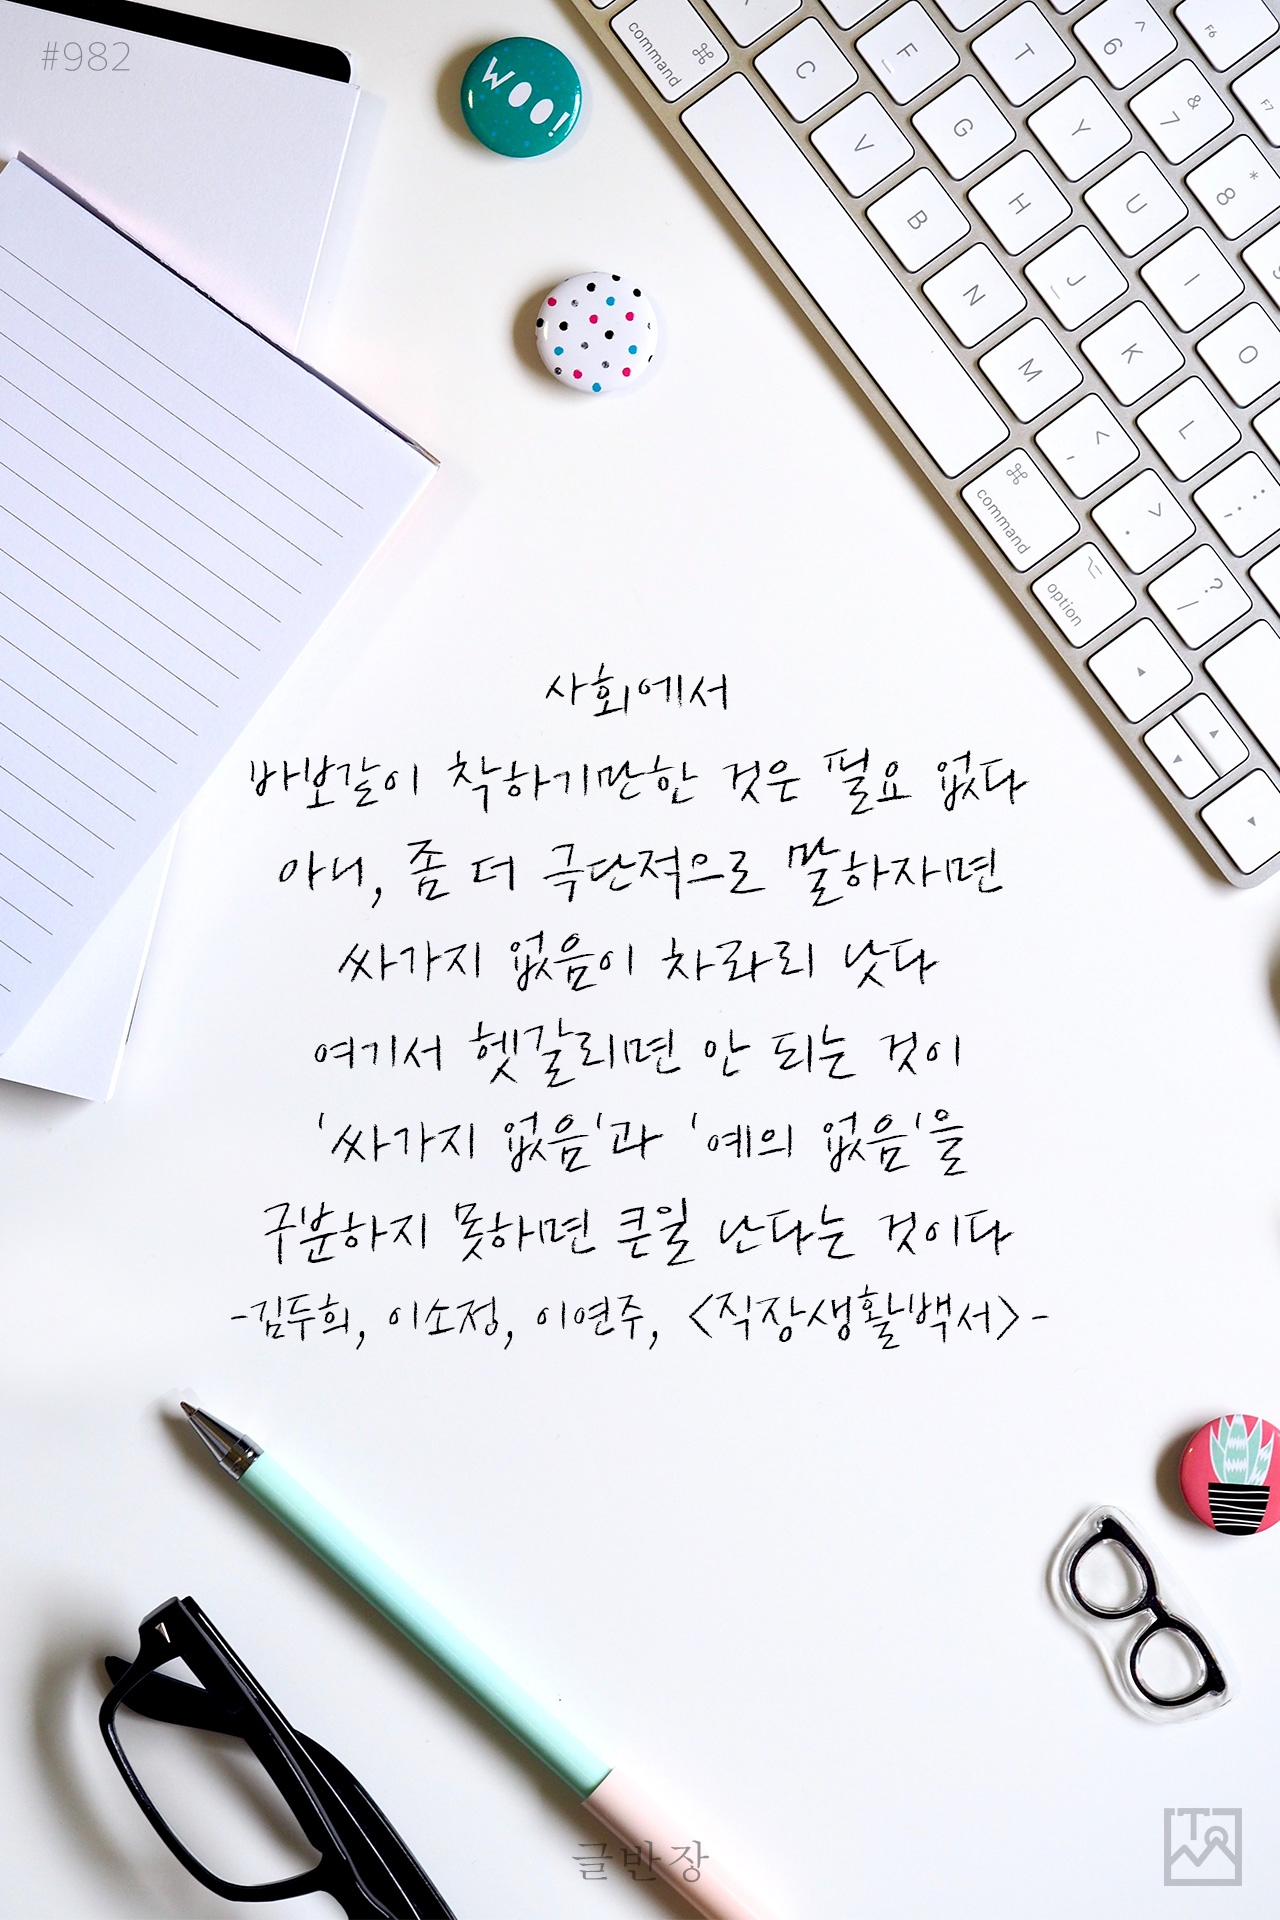 #982
WOO!
command ⌘
C
F
T
^
6
F6
V
G
Y
&
7
F7
B
H
U
*
8
N
J
I
M
K
O
<
,
L
⌘
command
>
.
:
;
⌥
option
?
/
사회에서
바보같이 착하기만한 것은 필요 없다
아니, 좀 더 극단적으로 말하자면
싸가지 없음이 차라리 낫다
여기서 헷갈리면 안 되는 것이
'싸가지 없음'과 '예의 없음'을
구분하지 못하면 큰일 난다는 것이다
-김두희, 이소정, 이연주, <직장생활백서>-
글반장